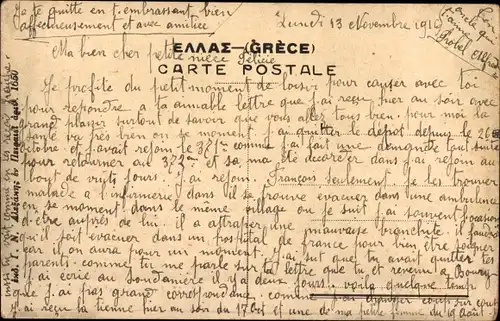 Je te quitte en t'embrassant bien
affectueusement et avec amitiés
Lundi 13 Novembre 191
Ma bien cher petite nièce Félicie
ΕΛΛΑΣ—(GRÈCE)
CARTE POSTALE
Je profite du petit moment de loisir pour causer avec toi
pour répondre a ta aimable lettre que j'ai reçu hier au soir avec
grand plaisir surtout de savoir que vous allez tous bien. pour moi la
santé va très bien en se moment. j'ai quitter le dépôt depuis le 26
octobre et j'avait rejoin le 321 comme j'ai fait une demande tout suite
pour retourner au 372me et sa ma été accorder dans j'ai rejoin au
bout de vuits jours. j'ai rejoin François seulement je les trouver
malade a l'infirmerie dans il se trouve evacuer dans une ambulance
en se moment dans le même village ou je suit j'ai souvent l'occasion
d'être auprès de lui. il a attraper une mauvaise bronchite. il faudra
qu'il soit evacuer dans un hospital de france pour bien être soigner
car il en aura pour un moment. j'ai suit que tu avait quitter tes
parents. comme tu me parle sur ta lettre que tu et revenu a Bourg
j'ai ecrie au il y a deux jours. voila quelque temp
que j'ai pas grand correspondance. comme j'ai changer coup sur coup
j'ai reçu la tienne hier au soir du 17 Oct et une de ma petite femme du 19 Août